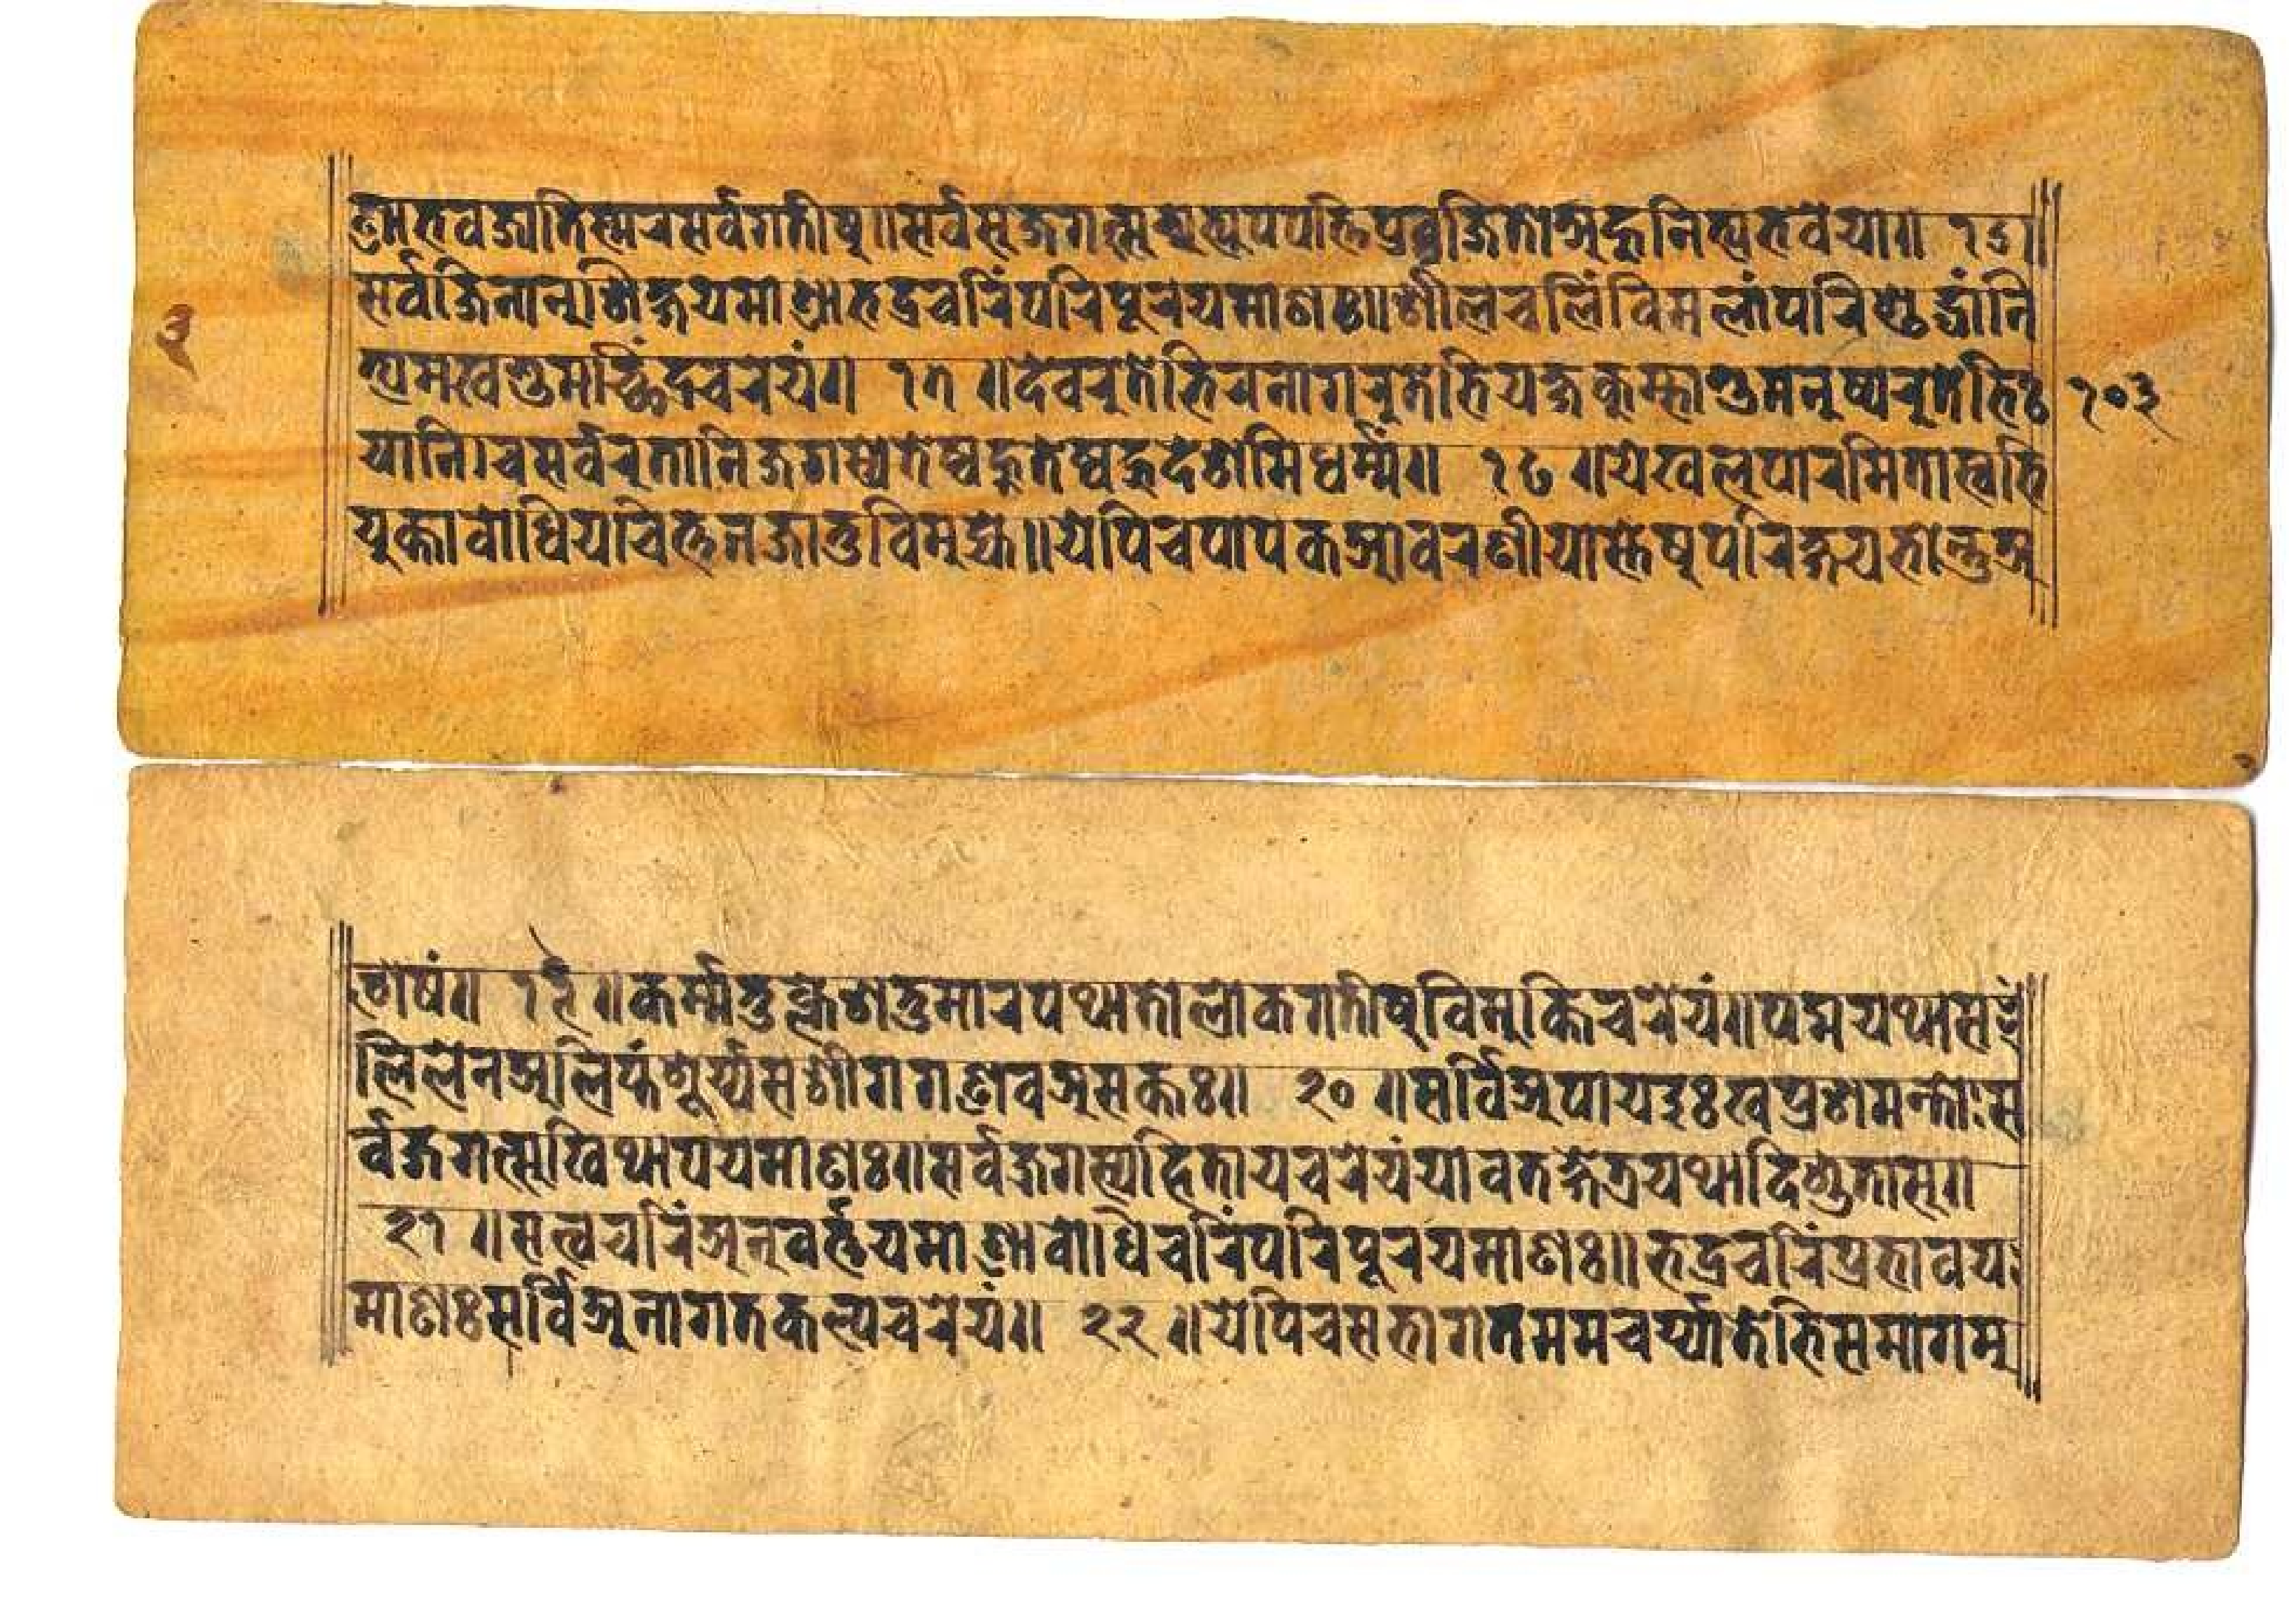 णोभवजातिस्मरसर्वगतीषु॥सर्वसुजगत्सुच्युत्युपपत्तिप्रव्रजितोअहुनित्यभवेया॥ १६॥
सर्वजिनानुशिक्षयमाणोभद्रचरिंपरिपूरयमाणः॥शीलचलिंविमलांपरिशुद्धांनि
त्यमखण्डमच्छिंद्रचरेयं॥ १७ ॥देवरुतेभिचनागरुतेभियक्षकुम्भाण्डमनुष्यरुतेभिः १०३
यानि।चसर्वरुतानिजगस्येतेष्वहुतेष्वहुदेशेमिधर्म्मं॥ १८ ॥येखलुपारमितास्वभि
युक्तोबोधियचित्तनजातुविमुह्ये॥येपिचपापकआवरणीयास्तेषुपरिक्षयभोन्तुअ
शेषं॥ १९ ॥कर्म्मतुक्लेशतुमारपथातोलोकगतीषुविमुक्तिचरेयं॥पद्मयथास
लिलेनअलिप्तंशूर्य्यसशीगगणेवअसक्तः॥ २० ॥सर्विअपायदुःखप्रशमन्तोःस
र्वजगत्सुखिथापयमाणः॥सर्वजगस्यहितायचरेयंयावतक्षेत्रयथादिशुतासु॥
२१ ॥सत्वचरिंअनुवर्त्तयमाणोबोधिचरिंपरिपूरयमाणः॥भद्रचरिंप्रभावय
माणःसर्विअनागतकल्पचरेयं॥ २२ ॥येपिचसभागतममचर्य्यातेभिसमागमु